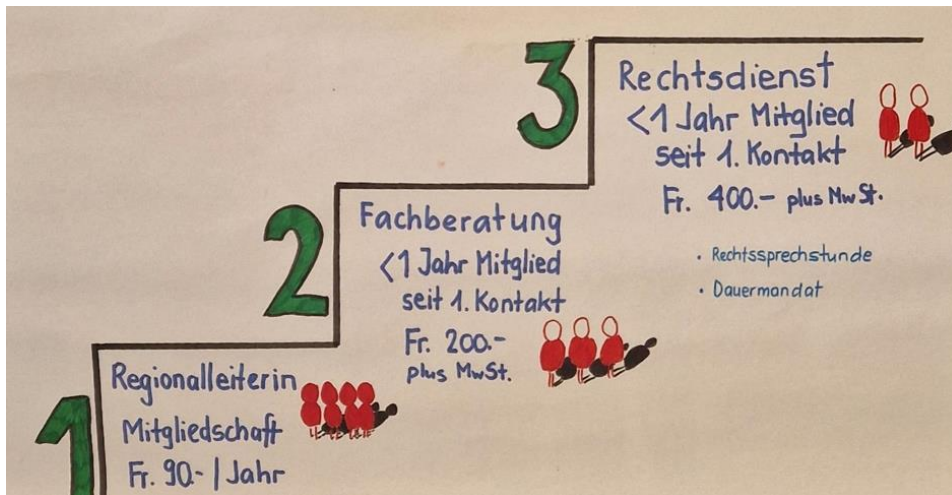 1
Regionalleiterin
Mitgliedschaft
Fr. 90.- / Jahr
2
Fachberatung
<1 Jahr Mitglied
seit 1. Kontakt
Fr. 200.-
plus MwSt.
3
Rechtsdienst
<1 Jahr Mitglied
seit 1. Kontakt
Fr. 400.- plus MwSt.
• Rechtssprechstunde
• Dauermandat